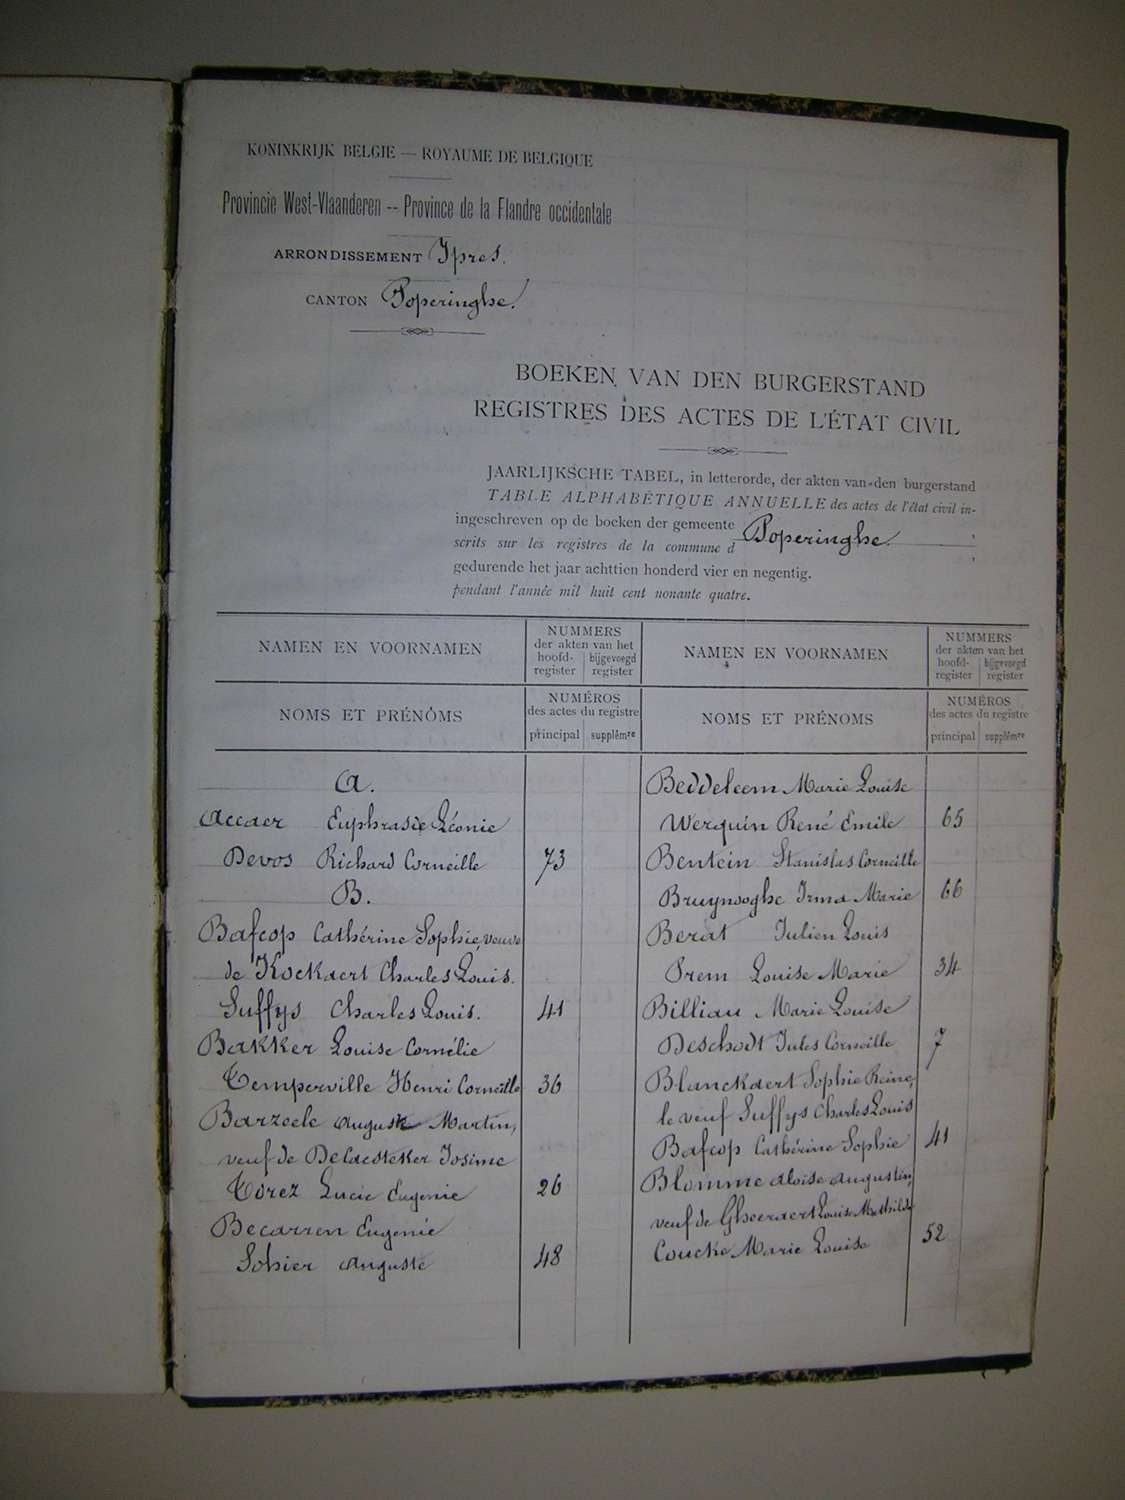 KONINKRIJK BELGIE — ROYAUME DE BELGIQUE
Provincie West-Vlaanderen -- Province de la Flandre occidentale
ARRONDISSEMENT Ypres.
CANTON Poperinghe.
BOEKEN VAN DEN BURGERSTAND
REGISTRES DES ACTES DE L'ÉTAT CIVIL
JAARLIJKSCHE TABEL, in letterorde, der akten van den burgerstand
TABLE ALPHABÉTIQUE ANNUELLE des actes de l'état civil in-
ingeschreven op de boeken der gemeente
scrits sur les registres de la commune d
Poperinghe
gedurende het jaar achttien honderd vier en negentig.
pendant l'année mil huit cent nonante quatre.
NAMEN EN VOORNAMEN
NUMMERS
der akten van het
hoofd-register
bijgevoegd register
NOMS ET PRÉNOMS
NUMÉROS
des actes du registre
principal
supplémre
A.
Accaer Euphrasie Léonie
Devos Richard Corneille 73
B.
Bafcop Cathérine Sophie, veuve
de Kockaert Charles Louis.
Suffys Charles Louis. 41
Bakker Louise Cornélie
Temperville Henri Corneille 36
Barzeele Auguste Martin,
veuf de Delaesteker Josime
Torez Lucie Eugenie 26
Becarren Eugenie
Sohier Auguste 48
NAMEN EN VOORNAMEN
NUMMERS
der akten van het
hoofd-register
bijgevoegd register
NOMS ET PRÉNOMS
NUMÉROS
des actes du registre
principal
supplémre
Beddeleem Marie Louise
Werquin René Emile 65
Bentein Stanislas Corneille
Bruynooghe Irma Marie 66
Berat Julien Louis
Prem Louise Marie 34
Billiau Marie Louise
Deschodt Jules Corneille 7
Blanckaert Sophie Reine,
le veuf Suffys Charles Louis
Bafcop Cathérine Sophie 41
Blomme Aloïse Augustin,
veuf de Gheeraert Louise Mathilde
Coucke Marie Louise 52